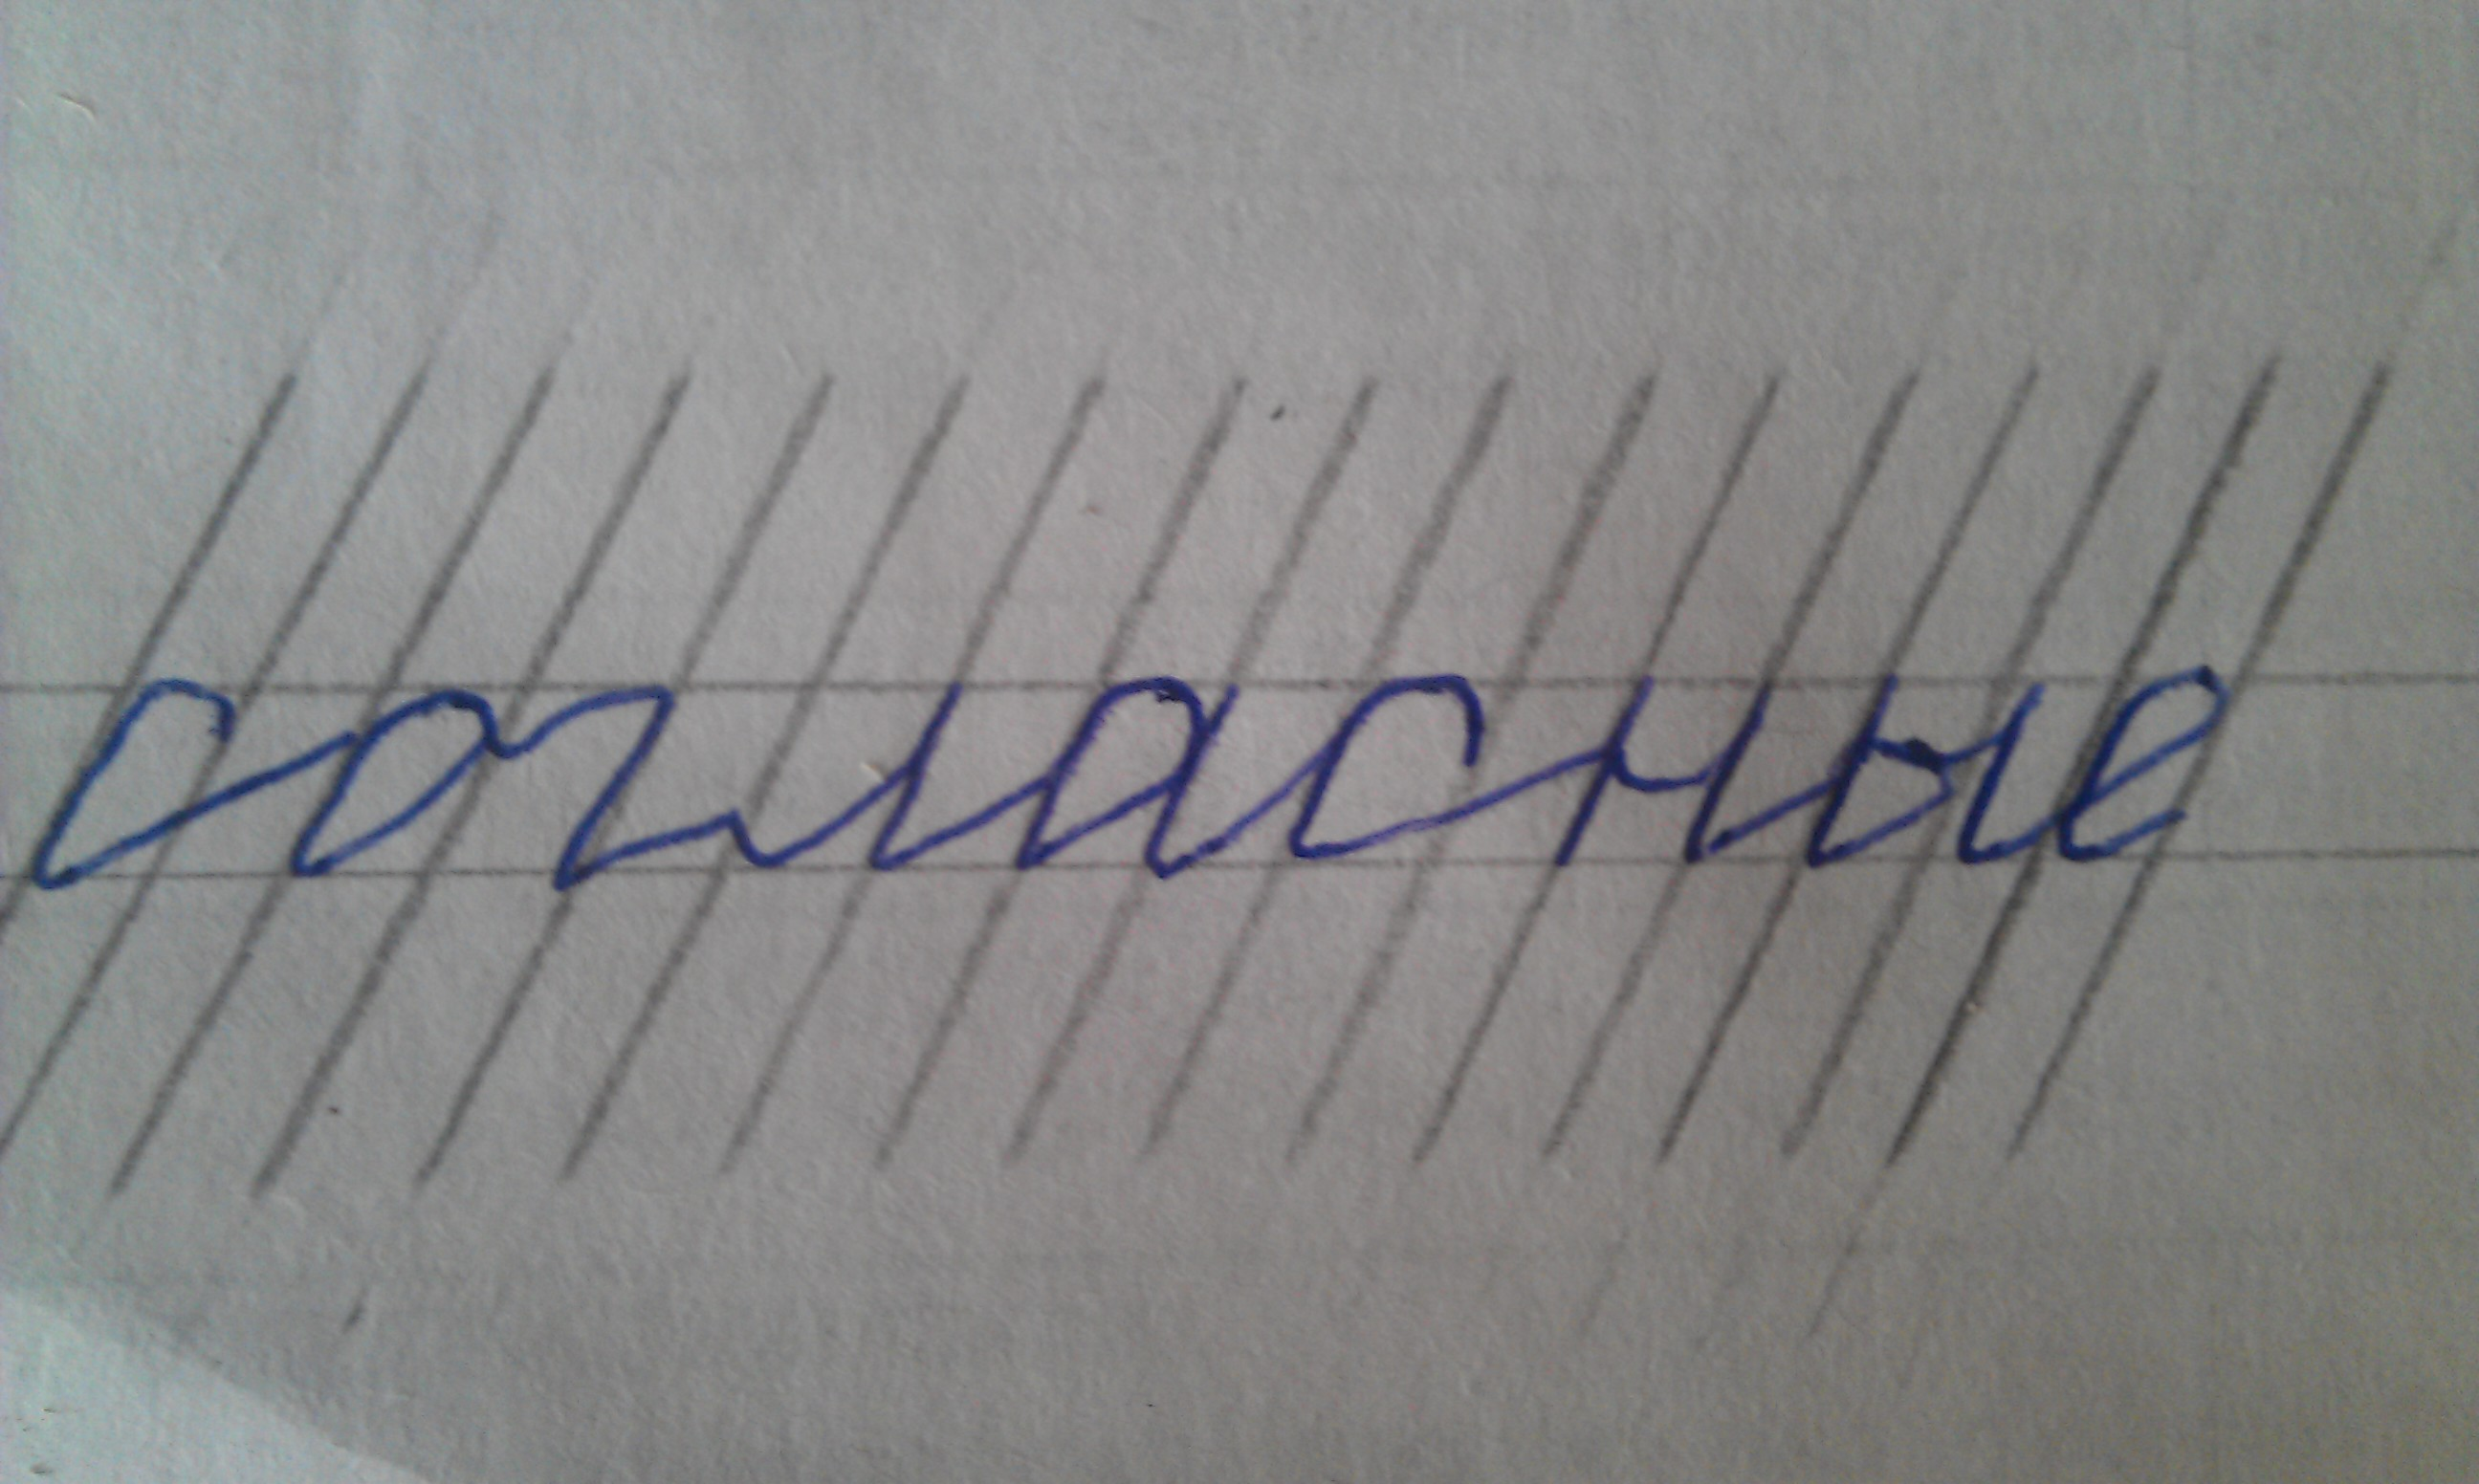 согласные